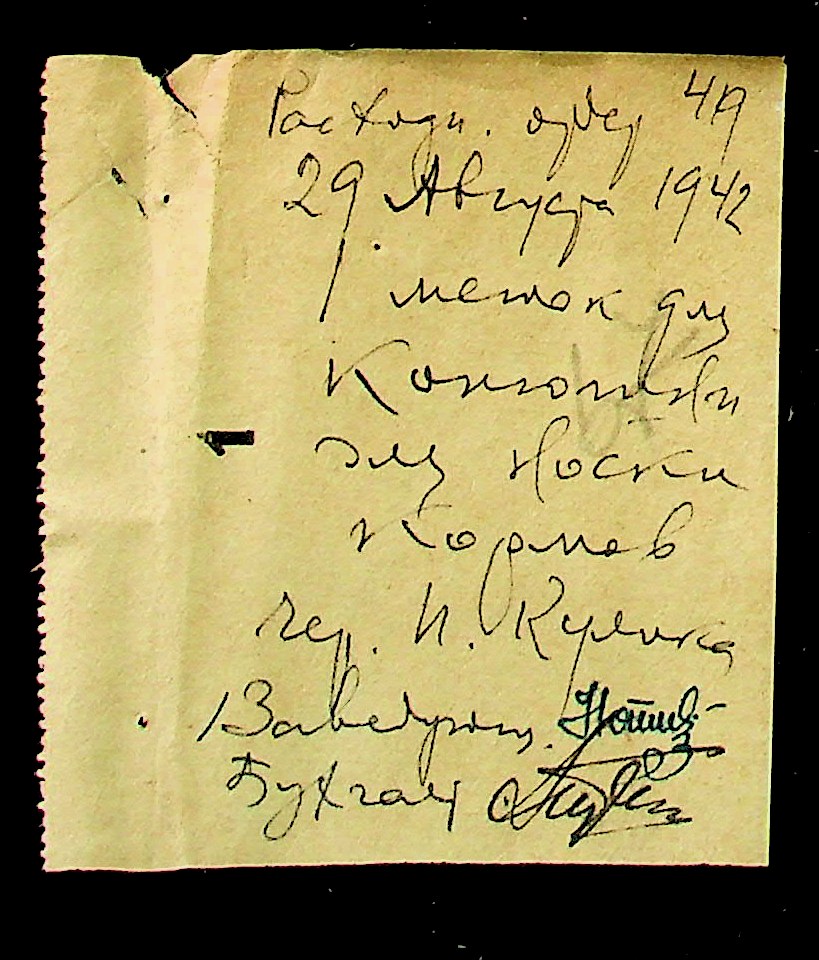 Расходн. ордер 49
29 Августа 1942
1 мешок для
Конюшни
для носки
Кормов
чер. И. Кулика
Заведующ.
Бухгалт